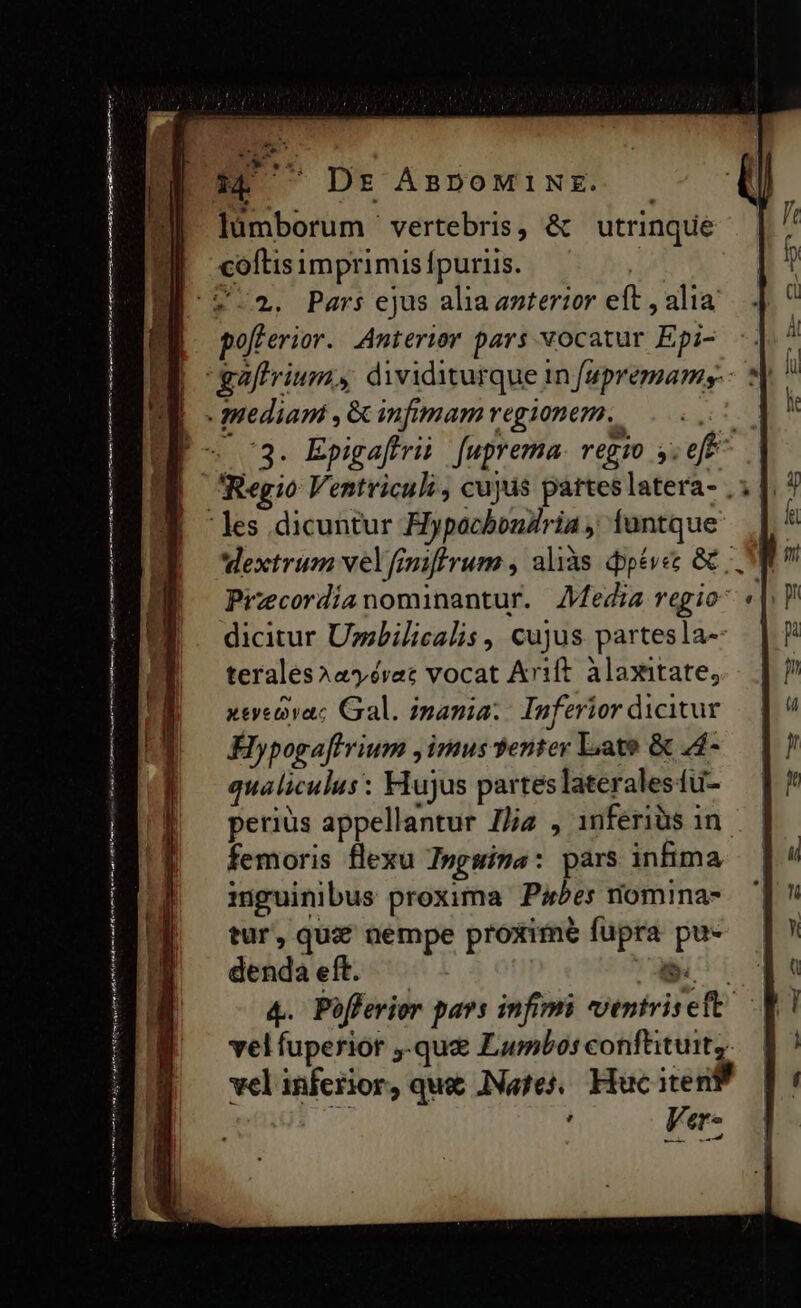 14 DE ABDOMINE.
lumborum vertebris, & utrinque
coſtis imprimis ſpuriis.
2. Pars ejus alia anterior eſt, alia
poſterior. Anterior pars vocatur Epi-
gaſtrium, dividiturque in ſupremam,
mediam, & infimam regionem.
3. Epigaſtrii ſuprema regio, eſt
Regio Ventriculi, cujus partes latera-
les dicuntur Hypochondria, ſuntque
dextrum vel ſiniſtrum, aliàs φρένες &
Præcordia nominantur. Media regio
dicitur Umbilicalis, cujus partes la-
terales λαγόνας vocat Ariſt à laxitate,
κενεῶνας Gal. inania. Inferior dicitur
Hypogaſtrium, imus venter Lato & A-
qualiculus: Hujus partes laterales ſu-
periùs appellantur Ilia, inferiùs in
femoris flexu Inguina: pars infima
inguinibus proxima Pubes nomina-
tur, quæ nempe proximè ſupra pu-
denda eſt.
4. Poſterior pars infimi ventris eſt
vel ſuperior, quæ Lumbos conſtituit,
vel inferior, quæ Nates. Huc item
Ver-